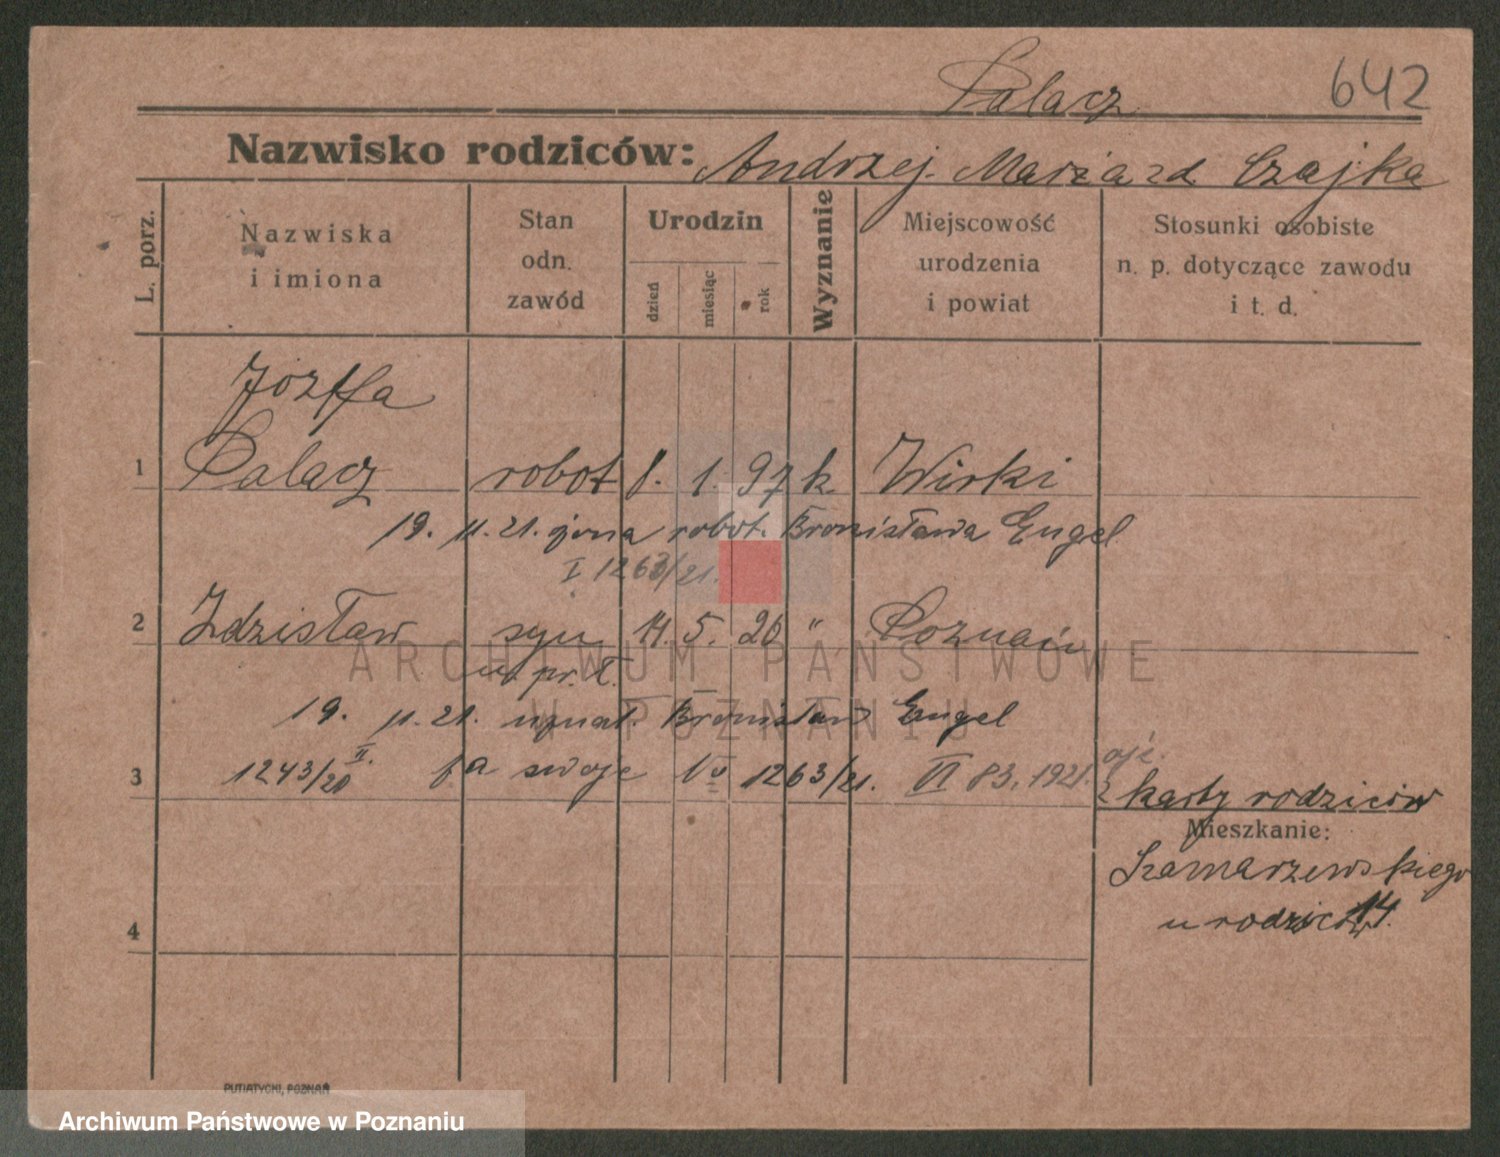 Palacz 642
Nazwisko rodziców: Andrzej Marja zd Czajka
L. porz.
Nazwiska i imiona
Stan odn. zawód
Urodzin
dzień
miesiąc
rok
Wyznanie
Miejscowość urodzenia i powiat
Stosunki osobiste n. p. dotyczące zawodu i t. d.
Józefa
1 Palacz robot 8. 1. 97 k Wirki
19. 11. 21. żona robot. Bronisława Engel
I 1263/21.
2 Zdzisław syn 14. 5. 20 " Poznań
19. 11. 21. uznał. Bronisław Engel
3 1243/20 II. za swoje 1263/21. VI 83. 1921.
z karty rodziców
Mieszkanie:
Szamarzewskiego
u rodziców 14.
4
PUTIATYCKI, POZNAŃ
ARCHIWUM PAŃSTWOWE
W POZNANIU
Archiwum Państwowe w Poznaniu